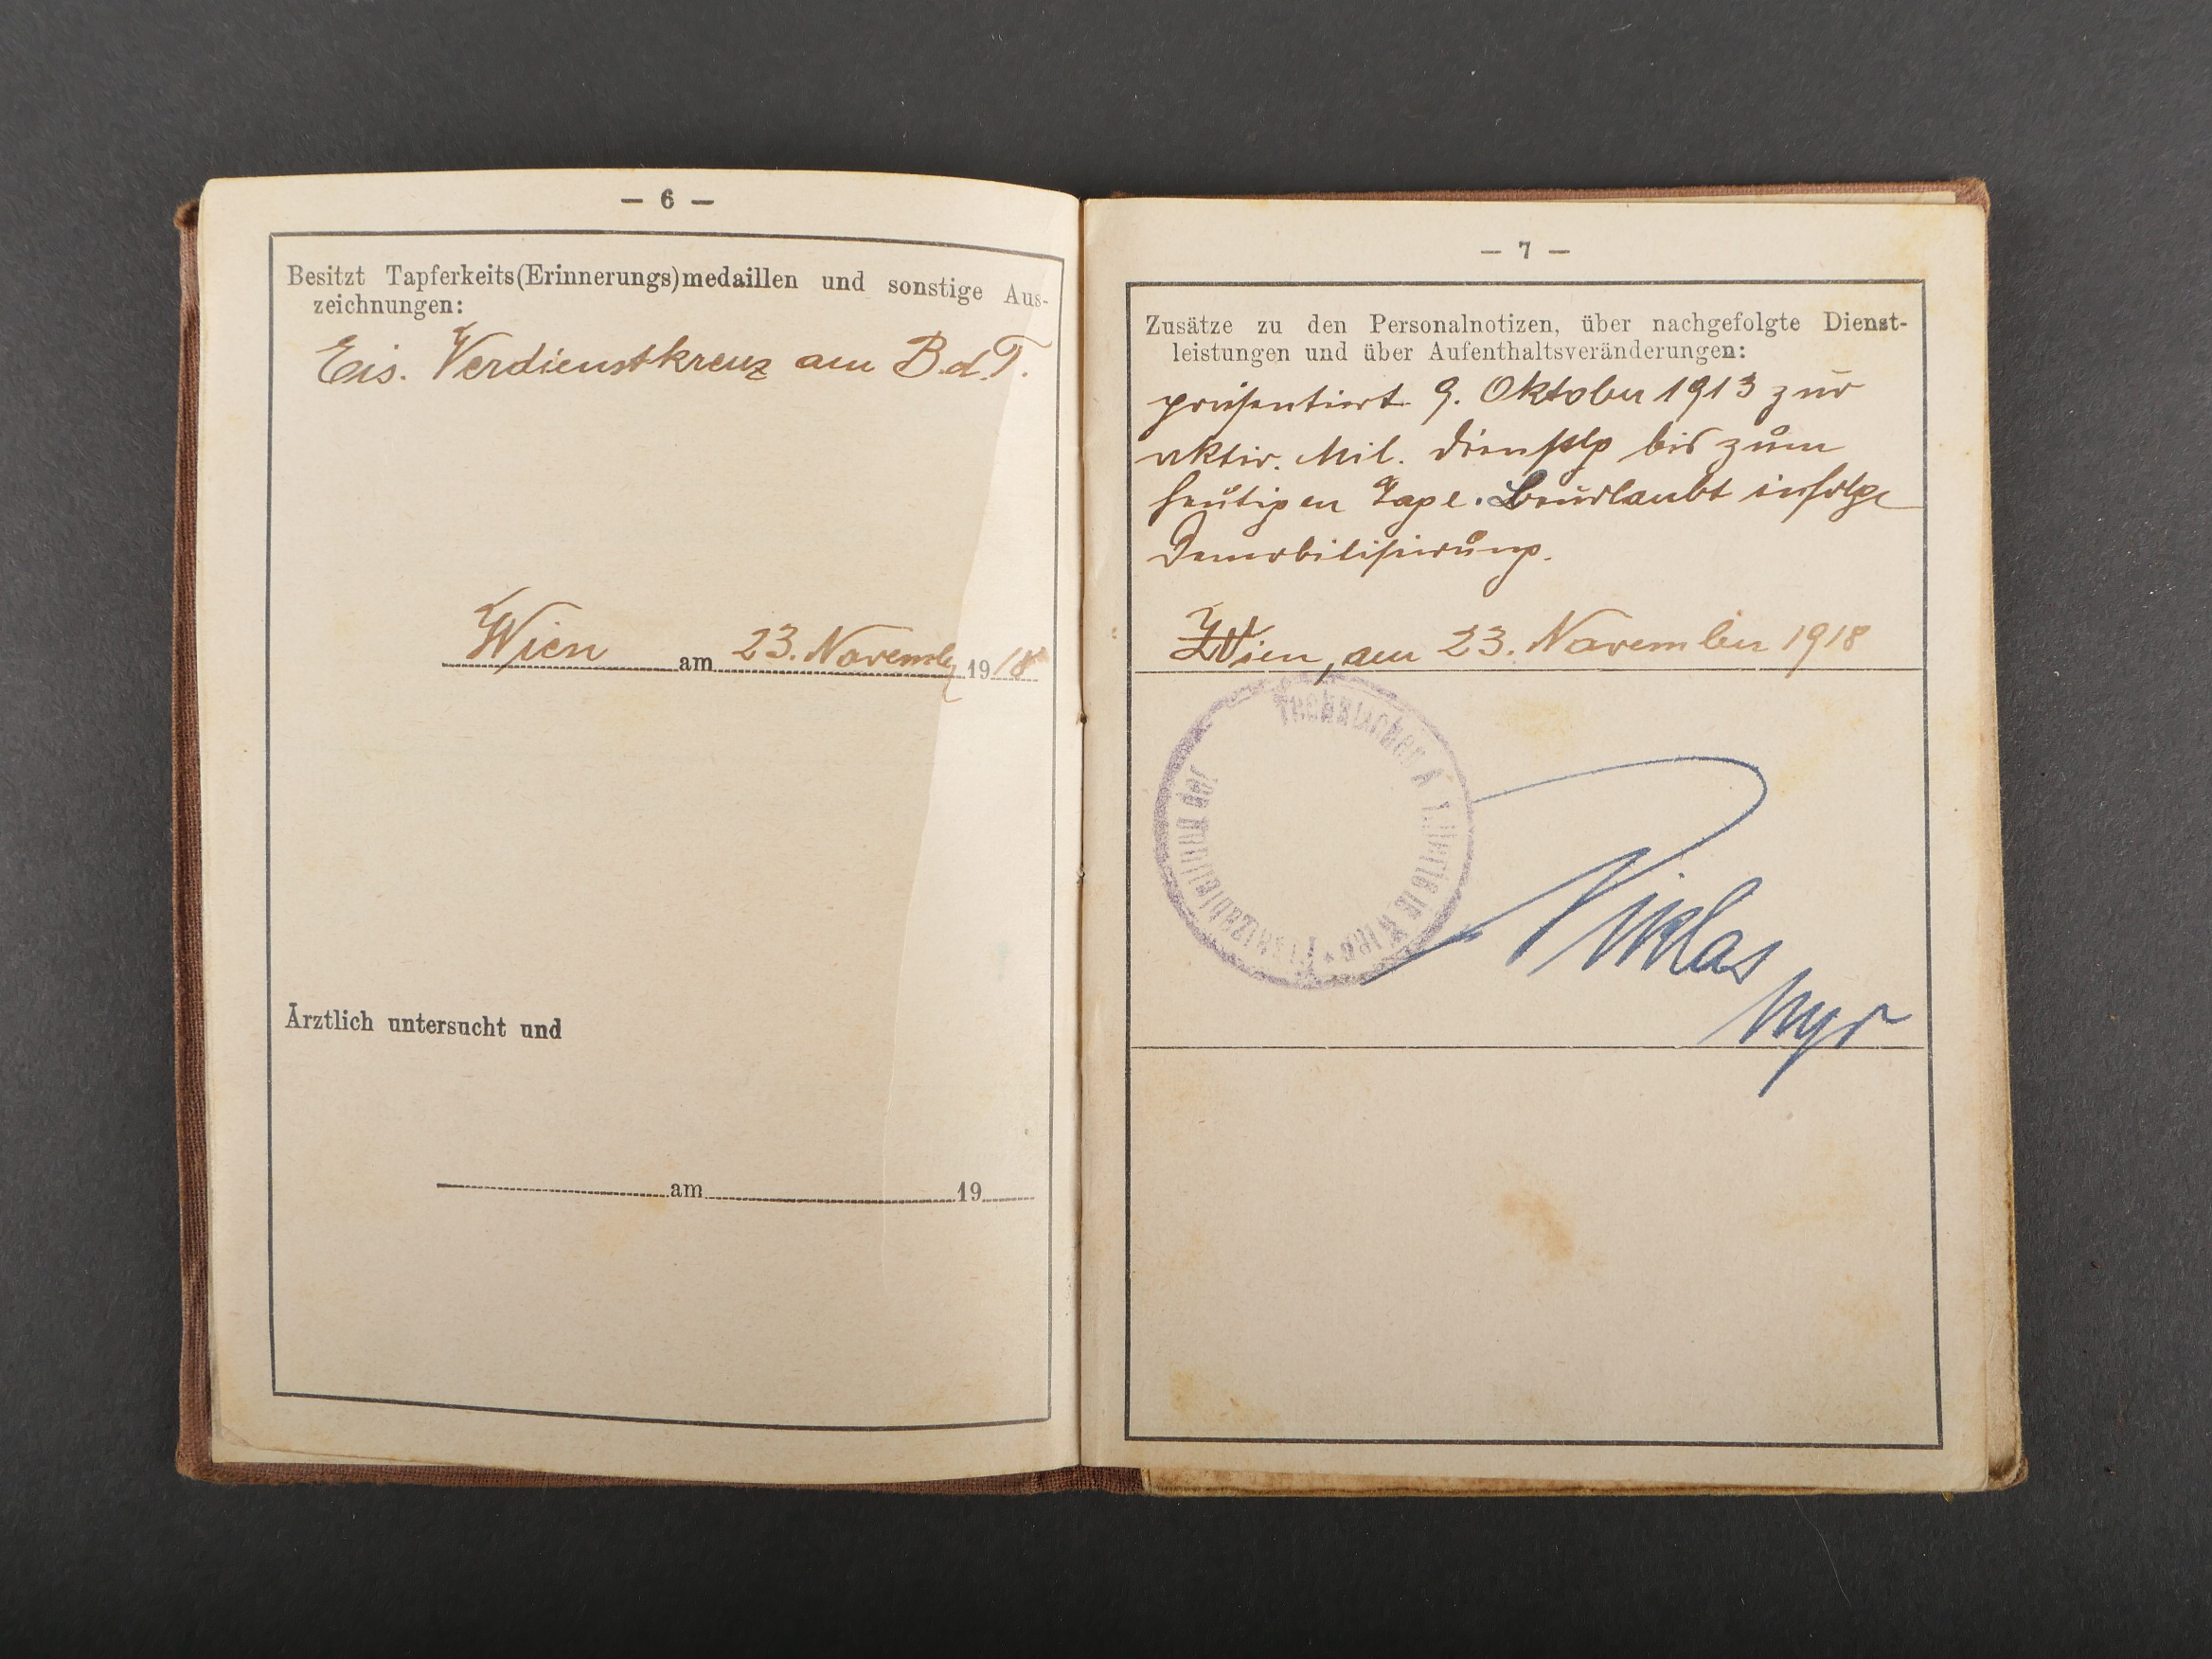 — 6 —
Besitzt Tapferkeits(Erinnerungs)medaillen und sonstige Aus-
zeichnungen:
Eis. Verdienstkreuz am B.d.T.
Wien am 23. November 1918
Ärztlich untersucht und
am 19
— 7 —
Zusätze zu den Personalnotizen, über nachgefolgte Dienst-
leistungen und über Aufenthaltsveränderungen:
präsentiert 9. Oktober 1913 zur
aktiv. Mil. bis zum
heutigen Tage. Beurlaubt infolge
Demobilisierung.
Wien, am 23. November 1918
Technischen
Niklas
Mjr